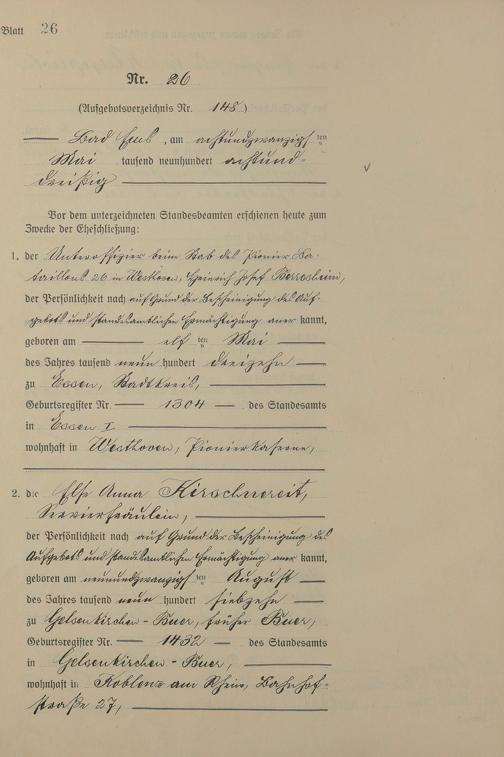 Blatt 26
Nr. 26
(Aufgebotsverzeichnis Nr. 148)
Bad Ems, am achtundzwanzigsten
Mai tausend neunhundert achtund-
dreißig
Vor dem unterzeichneten Standesbeamten erschienen heute zum
Zwecke der Eheschließung:
1. der Unteroffizier beim Stab des Pionier Ba-
taillons 26 in Westhoven, Heinrich Josef Berresheim,
der Persönlichkeit nach auf Grund der Bescheinigung des Auf-
gebots und standesamtlichen Ermächtigung aner kannt,
geboren am elf ten Mai
des Jahres tausend neun hundert dreizehn
zu Essen, Stadtkreis,
Geburtsregister Nr. 1304 des Standesamts
in Essen I
wohnhaft in Westhoven, Pionierkaserne,
2. die Else Anna Kirschnereit,
Servierfräulein,
der Persönlichkeit nach auf Grund der Bescheinigung des
Aufgebots und standesamtlichen Ermächtigung aner kannt,
geboren am neunundzwanzigsten August
des Jahres tausend neun hundert siebzehn
zu Gelsenkirchen-Buer, früher Buer,
Geburtsregister Nr. 1432 des Standesamts
in Gelsenkirchen-Buer,
wohnhaft in Koblenz am Rhein, Bahnhof-
straße 27,